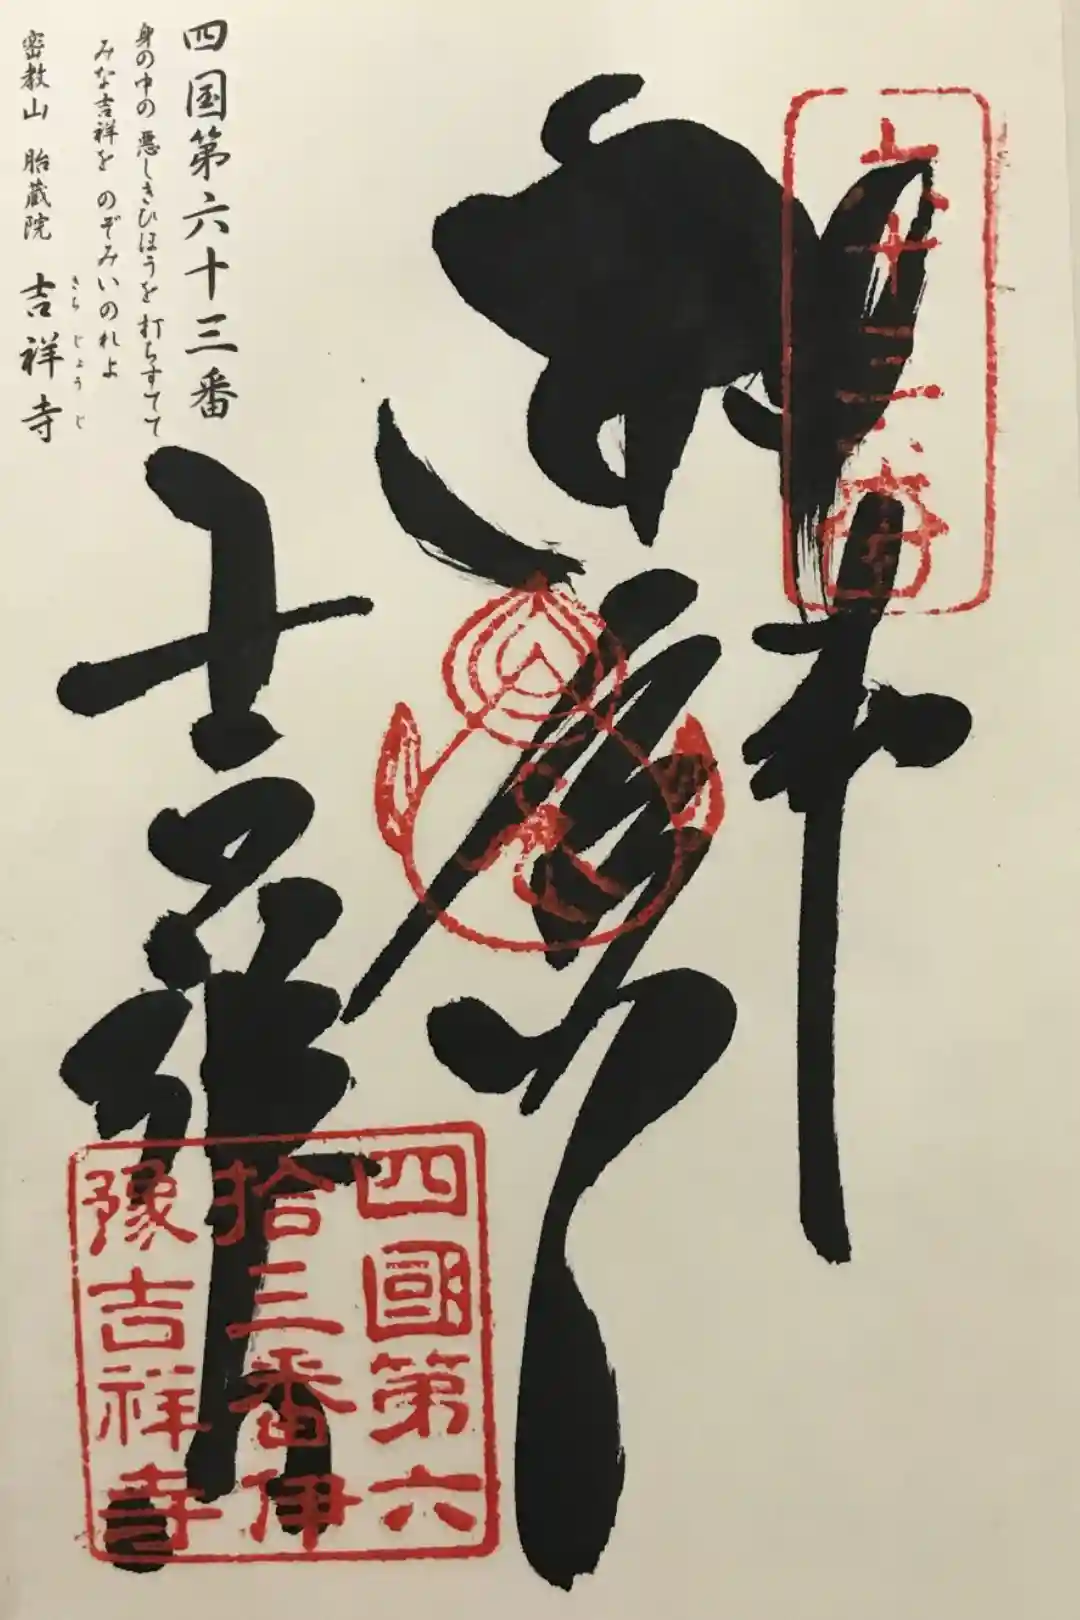 四国第六十三番
身の中の 悪しきひほうを 打ちすてて
みな吉祥を のぞみいのれよ
密教山 胎蔵院 吉祥寺
きちじょうじ
奉
六十三番
吉祥寺
四國第六
拾三番伊
豫吉祥寺